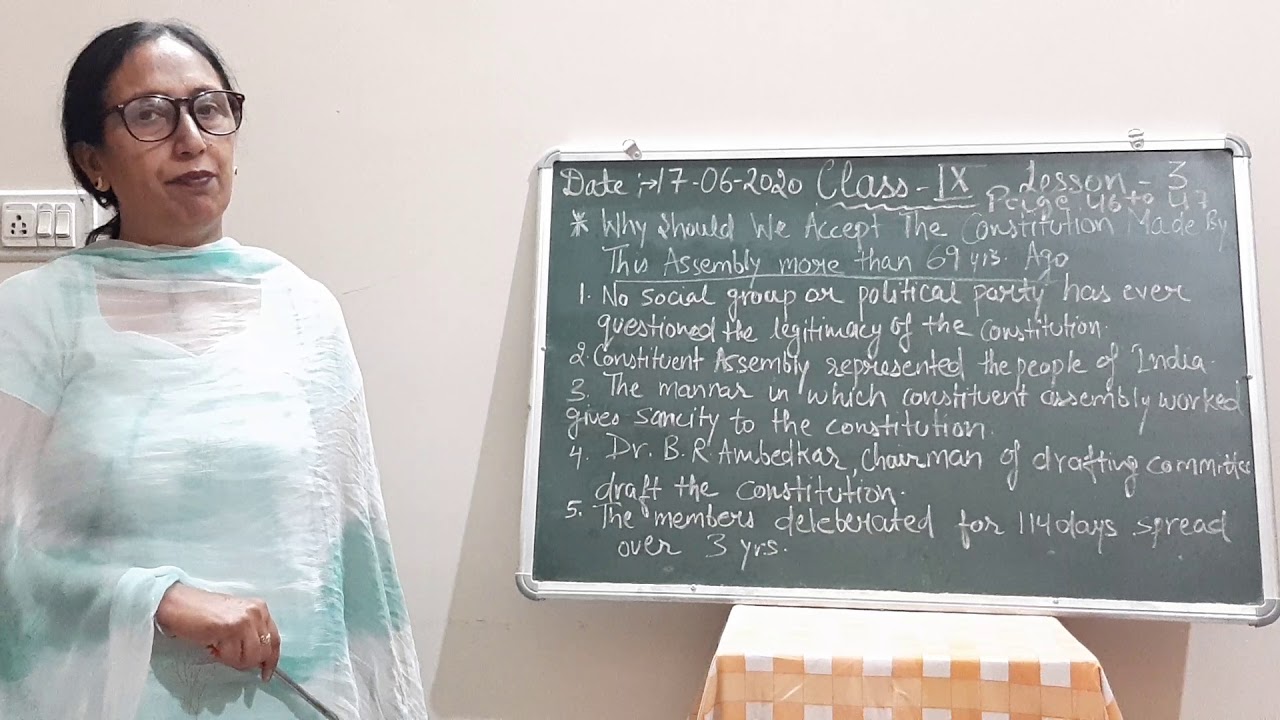 Date :→ 17-06-2020 Class - IX Lesson - 3
Page 46 to 47
* Why Should We Accept The Constitution Made By
This Assembly more than 69 yrs. Ago
1. No social group or political party has ever
questioned the legitimacy of the constitution.
2. Constituent Assembly represented the people of India.
3. The mannar in which constituent assembly worked
gives sancity to the constitution.
4. Dr. B.R. Ambedkar, chairman of drafting committee
draft the constitution.
5. The members deleberated for 114 days spread
over 3 yrs.